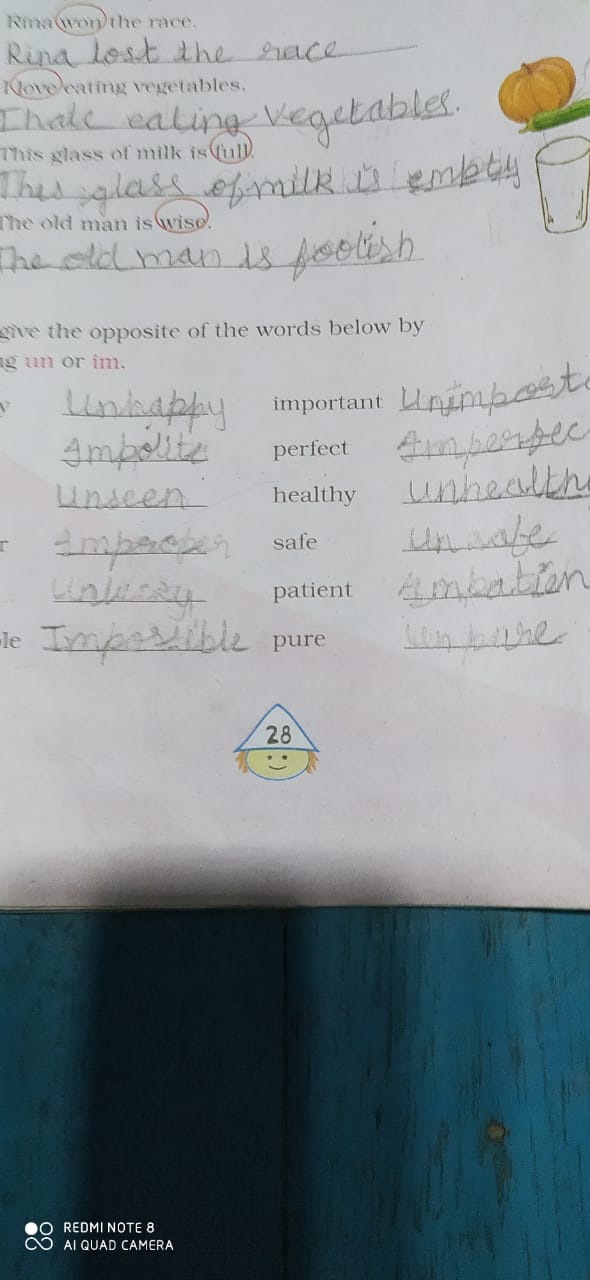 Rina won the race.
Rina lost the race
I love eating vegetables.
I hate eating vegetables.
This glass of milk is full.
This glass of milk is embty
The old man is wise.
The old man is foolish
give the opposite of the words below by
ng un or im.
y Unhappy important Unimport
Impolite perfect Imperfec
Unseen healthy unhealth
r Improper safe Unsafe
Unlucky patient Impatien
le Impossible pure Unpure
28
REDMI NOTE 8
AI QUAD CAMERA